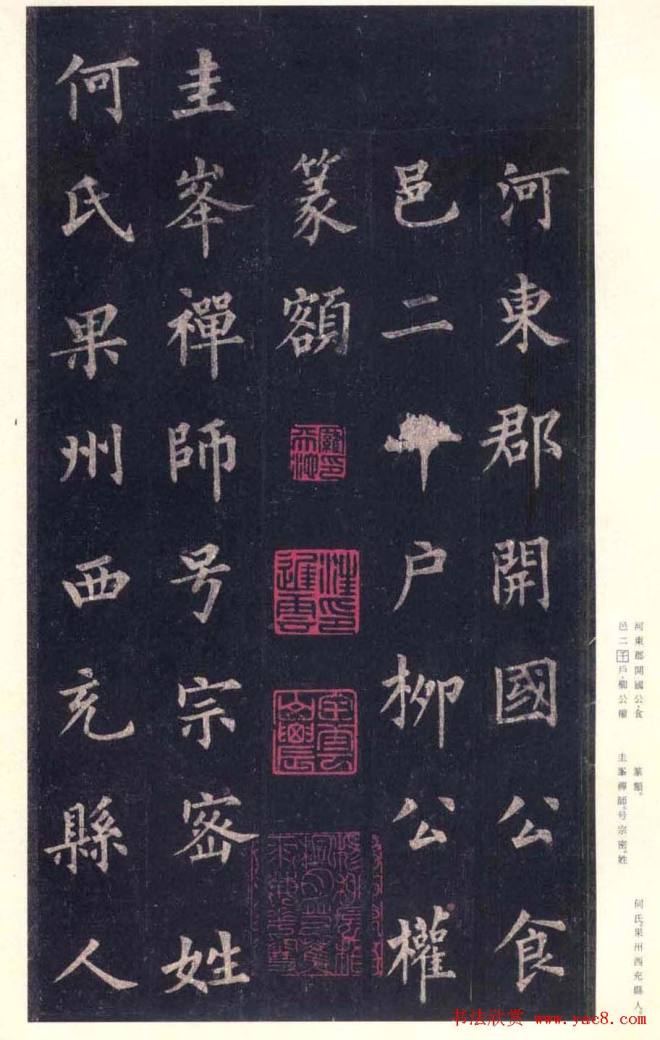 河東郡開國公食
邑二千户柳公權
篆額
圭峯禪師号宗密姓
何氏果州西充縣人
河東郡開國公食
邑二千戶柳公權
篆額
圭峯禪師号宗密姓
何氏果州西充縣人
书法欣赏 www.yac8.com